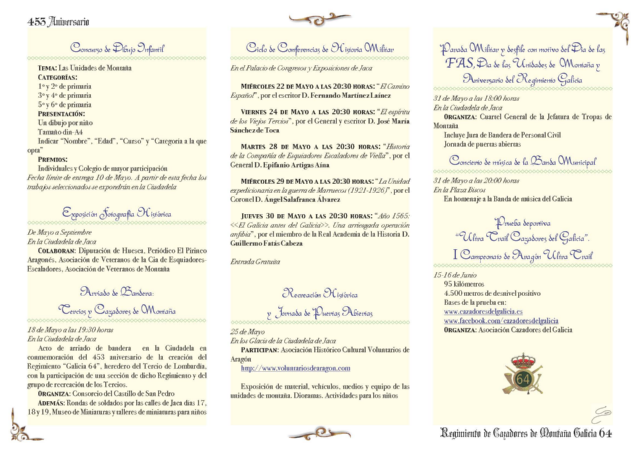 453 Aniversario
Concurso de Dibujo Infantil
TEMA: Las Unidades de Montaña
CATEGORÍAS:
1º y 2º de primaria
3º y 4º de primaria
5º y 6º de primaria
PRESENTACIÓN:
Un dibujo por niño
Tamaño din-A4
Indicar "Nombre", "Edad", "Curso" y "Categoría a la que
opta"
PREMIOS:
Individuales y Colegio de mayor participación
Fecha límite de entrega 10 de Mayo. A partir de esta fecha los
trabajos seleccionados se expondrán en la Ciudadela
Exposición Fotografía Histórica
De Mayo a Septiembre
En la Ciudadela de Jaca
COLABORAN: Diputación de Huesca, Periódico El Pirineo
Aragonés, Asociación de Veteranos de la Cía de Esquiadores-
Escaladores, Asociación de Veteranos de Montaña
Arriado de Bandera:
Tercios y Cazadores de Montaña
18 de Mayo a las 19:30 horas
En la Ciudadela de Jaca
Acto de arriado de bandera en la Ciudadela en
conmemoración del 453 aniversario de la creación del
Regimiento "Galicia 64", heredero del Tercio de Lombardía,
con la participación de una sección de dicho Regimiento y del
grupo de recreación de los Tercios.
ORGANIZA: Consorcio del Castillo de San Pedro
ADEMÁS: Rondas de soldados por las calles de Jaca días 17,
18 y 19, Museo de Miniaturas y talleres de miniaturas para niños
Ciclo de Conferencias de Historia Militar
En el Palacio de Congresos y Exposiciones de Jaca
MIÉRCOLES 22 DE MAYO A LAS 20:30 HORAS: "El Camino
Español", por el escritor D. Fernando Martínez Laínez
VIERNES 24 DE MAYO A LAS 20:30 HORAS: "El espíritu
de los Viejos Tercios", por el General y escritor D. José María
Sánchez de Toca
MARTES 28 DE MAYO A LAS 20:30 HORAS: "Historia
de la Compañía de Esquiadores Escaladores de Viella", por el
General D. Epifanio Artigas Aína
MIÉRCOLES 29 DE MAYO A LAS 20:30 HORAS: "La Unidad
expedicionaria en la guerra de Marruecos (1921-1926)", por el
Coronel D. Ángel Salafranca Álvarez
JUEVES 30 DE MAYO A LAS 20:30 HORAS: "Año 1565:
<<El Galicia antes del Galicia>>. Una arriesgada operación
anfibia", por el miembro de la Real Academia de la Historia D.
Guillermo Fatás Cabeza
Entrada Gratuita
Recreación Histórica
y Jornada de Puertas Abiertas
25 de Mayo
En los Glacis de la Ciudadela de Jaca
PARTICIPAN: Asociación Histórico Cultural Voluntarios de
Aragón
http://www.voluntariosdearagon.com
Exposición de material, vehículos, medios y equipo de las
unidades de montaña. Dioramas. Actividades para los niños
Parada Militar y desfile con motivo del Día de las
FAS, Día de las Unidades de Montaña y
Aniversario del Regimiento Galicia
31 de Mayo a las 18:00 horas
En la Ciudadela de Jaca
ORGANIZA: Cuartel General de la Jefatura de Tropas de
Montaña
Incluye Jura de Bandera de Personal Civil
Jornada de puertas abiertas
Concierto de música de la Banda Municipal
31 de Mayo a las 20:00 horas
En la Plaza Biscos
En homenaje a la Banda de música del Galicia
Prueba deportiva
"Ultra Trail Cazadores del Galicia".
I Campeonato de Aragón Ultra Trail
15-16 de Junio
95 kilómetros
4.500 metros de desnivel positivo
Bases de la prueba en:
www.cazadoresdelgalicia.es
www.facebook.com/cazadoresdelgalicia
ORGANIZA: Asociación Cazadores del Galicia
64
Regimiento de Cazadores de Montaña Galicia 64